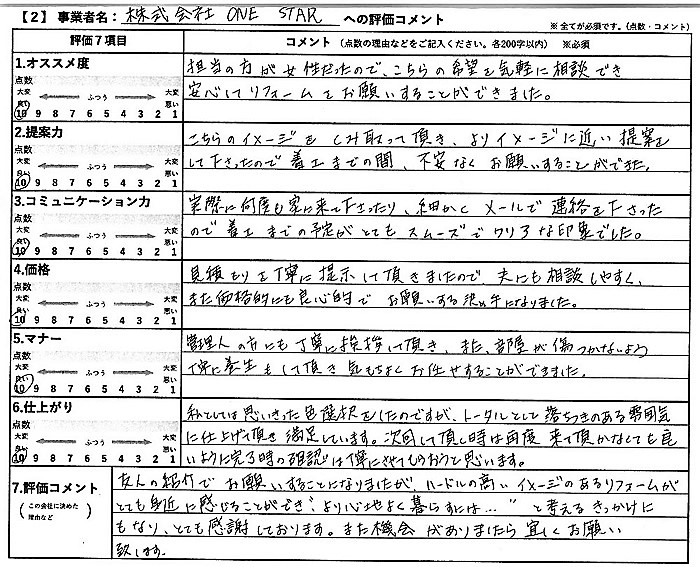 【2】事業者名： 株式会社 ONE STAR への評価コメント
※全てが必須です。（点数・コメント）
評価7項目
コメント（点数の理由などをご記入ください。各200字以内） ※必須
1.オススメ度
点数
大変良い ふつう 大変悪い
10 9 8 7 6 5 4 3 2 1
担当の方が女性だったので、こちらの希望を気軽に相談でき
安心してリフォームをお願いすることができました。
2.提案力
点数
大変良い ふつう 大変悪い
10 9 8 7 6 5 4 3 2 1
こちらのイメージをくみ取って頂き、よりイメージに近い提案を
して下さったので着工までの間、不安なくお願いすることができた。
3.コミュニケーション力
点数
大変良い ふつう 大変悪い
10 9 8 7 6 5 4 3 2 1
実際に何度も家に来て下さったり、細かくメールで連絡を下さった
ので着工までの予定がとてもスムーズでクリアな印象でした。
4.価格
点数
大変良い ふつう 大変悪い
10 9 8 7 6 5 4 3 2 1
見積もりを丁寧に提示して頂きましたので、夫にも相談しやすく、
また価格的にも良心的でお願いする決め手になりました。
5.マナー
点数
大変良い ふつう 大変悪い
10 9 8 7 6 5 4 3 2 1
管理人の方にも丁寧に挨拶して頂き、また、部屋が傷つかないよう
丁寧に養生もして頂き気もちよくお任せすることができました。
6.仕上がり
点数
大変良い ふつう 大変悪い
10 9 8 7 6 5 4 3 2 1
私としては思いきった色選択をしたのですが、トータルとして落ちつきのある雰囲気
に仕上げて頂き満足しています。次回して頂く時は再度来て頂かなくても良
いように完了時の確認は丁寧にさせてもらおうと思います。
7.評価コメント
（この会社に決めた理由など）
友人の紹介でお願いすることになりましたが、ハードルの高いイメージのあるリフォームが
とても身近に感じることができ、"より心地よく暮らすには…"と考えるきっかけに
もなり、とても感謝しております。また機会がありましたら宜しくお願い
致します。